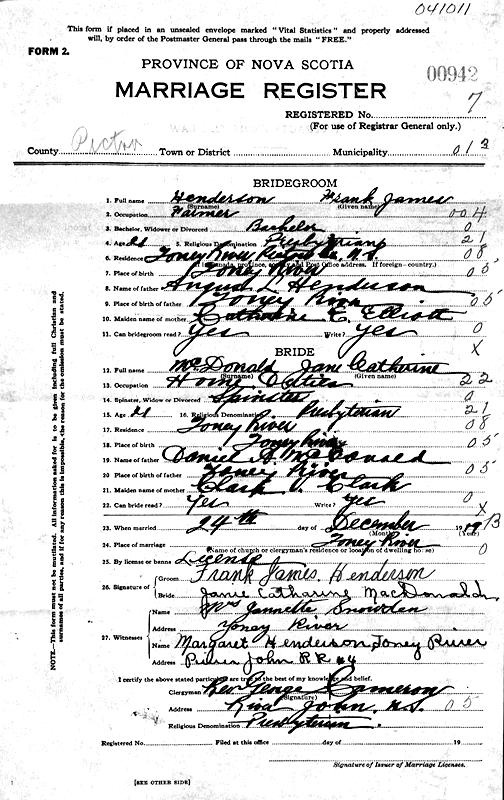 041011
This form if placed in an unsealed envelope marked "Vital Statistics" and properly addressed
will, by order of the Postmaster General pass through the mails "FREE."
FORM 2.
PROVINCE OF NOVA SCOTIA
00942
MARRIAGE REGISTER
REGISTERED No. 7
(For use of Registrar General only.)
County Pictou Town or District Municipality 013
BRIDEGROOM
1. Full name Henderson Frank James
(Surname) (Given name)
2. Occupation Farmer 004
3. Bachelor, Widower or Divorced Bachelor 0
4. Age 21 5. Religious Denomination Presbyterian 21
6. Residence Toney River Pictou Co. N.S. 08
(If Canada, province, county and Post Office address. If foreign - country.)
7. Place of birth Toney River 05
8. Name of father Angus L Henderson
9. Place of birth of father Toney River 05
10. Maiden name of mother Catharine E. Elliott
11. Can bridegroom read? Yes Write? Yes 0
X
BRIDE
12. Full name McDonald Jane Catherine
(Surname) (Given name)
13. Occupation Home Duties 22
14. Spinster, Widow or Divorced Spinster 0
15. Age 21 16. Religious Denomination Presbyterian 21
17. Residence Toney River 08
18. Place of birth Toney River 05
19. Name of father Daniel A McDonald
20. Place of birth of father Toney River 05
21. Maiden name of mother Clark Clark
22. Can bride read? Yes Write? Yes 0
X
23. When married 24th day of December 1913
(Month) (Year)
24. Place of marriage Toney River
(Name of church or clergyman's residence or location of dwelling house) 0
25. By license or banns License
26. Signature of Groom Frank James Henderson
Bride Janie Catharine MacDonald
27. Witnesses Name Mrs Jannetta Snowden
Address Toney River
Name Margaret Henderson, Toney River
Address River John RR #4
I certify the above stated particulars are true to the best of my knowledge and belief.
Clergyman Rev George Cameron
(Signature)
Address River John, N.S. 05
Religious Denomination Presbyterian
Registered No. Filed at this office day of 19
Signature of Issuer of Marriage Licenses.
[SEE OTHER SIDE]
NOTE—This form must not be mutilated. All information asked for is to be given including full Christian and
surnames of all parties, and if for any reason this is impossible, the reason for the omission must be stated.